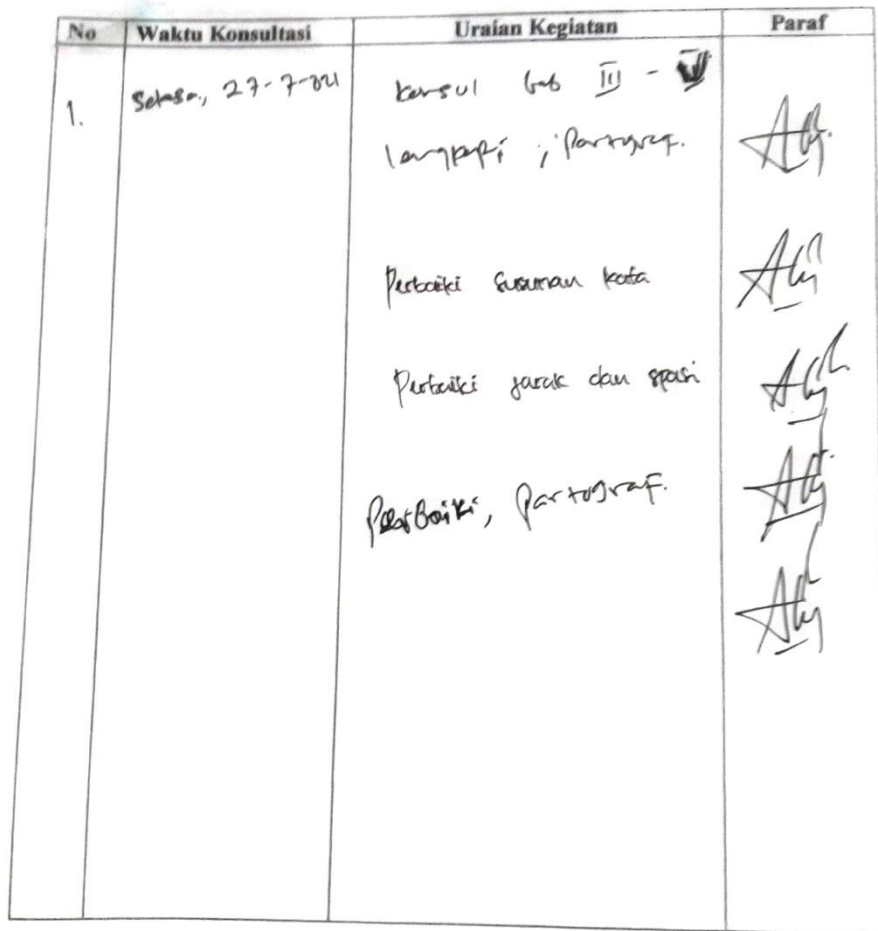 No Waktu Konsultasi Uraian Kegiatan Paraf
1. Selasa, 27-7-2021 Konsul bab III -
lengkapi ; Partograf.
Perbaiki susunan kata
Perbaiki jarak dan spasi
Perbaiki, Partograf.